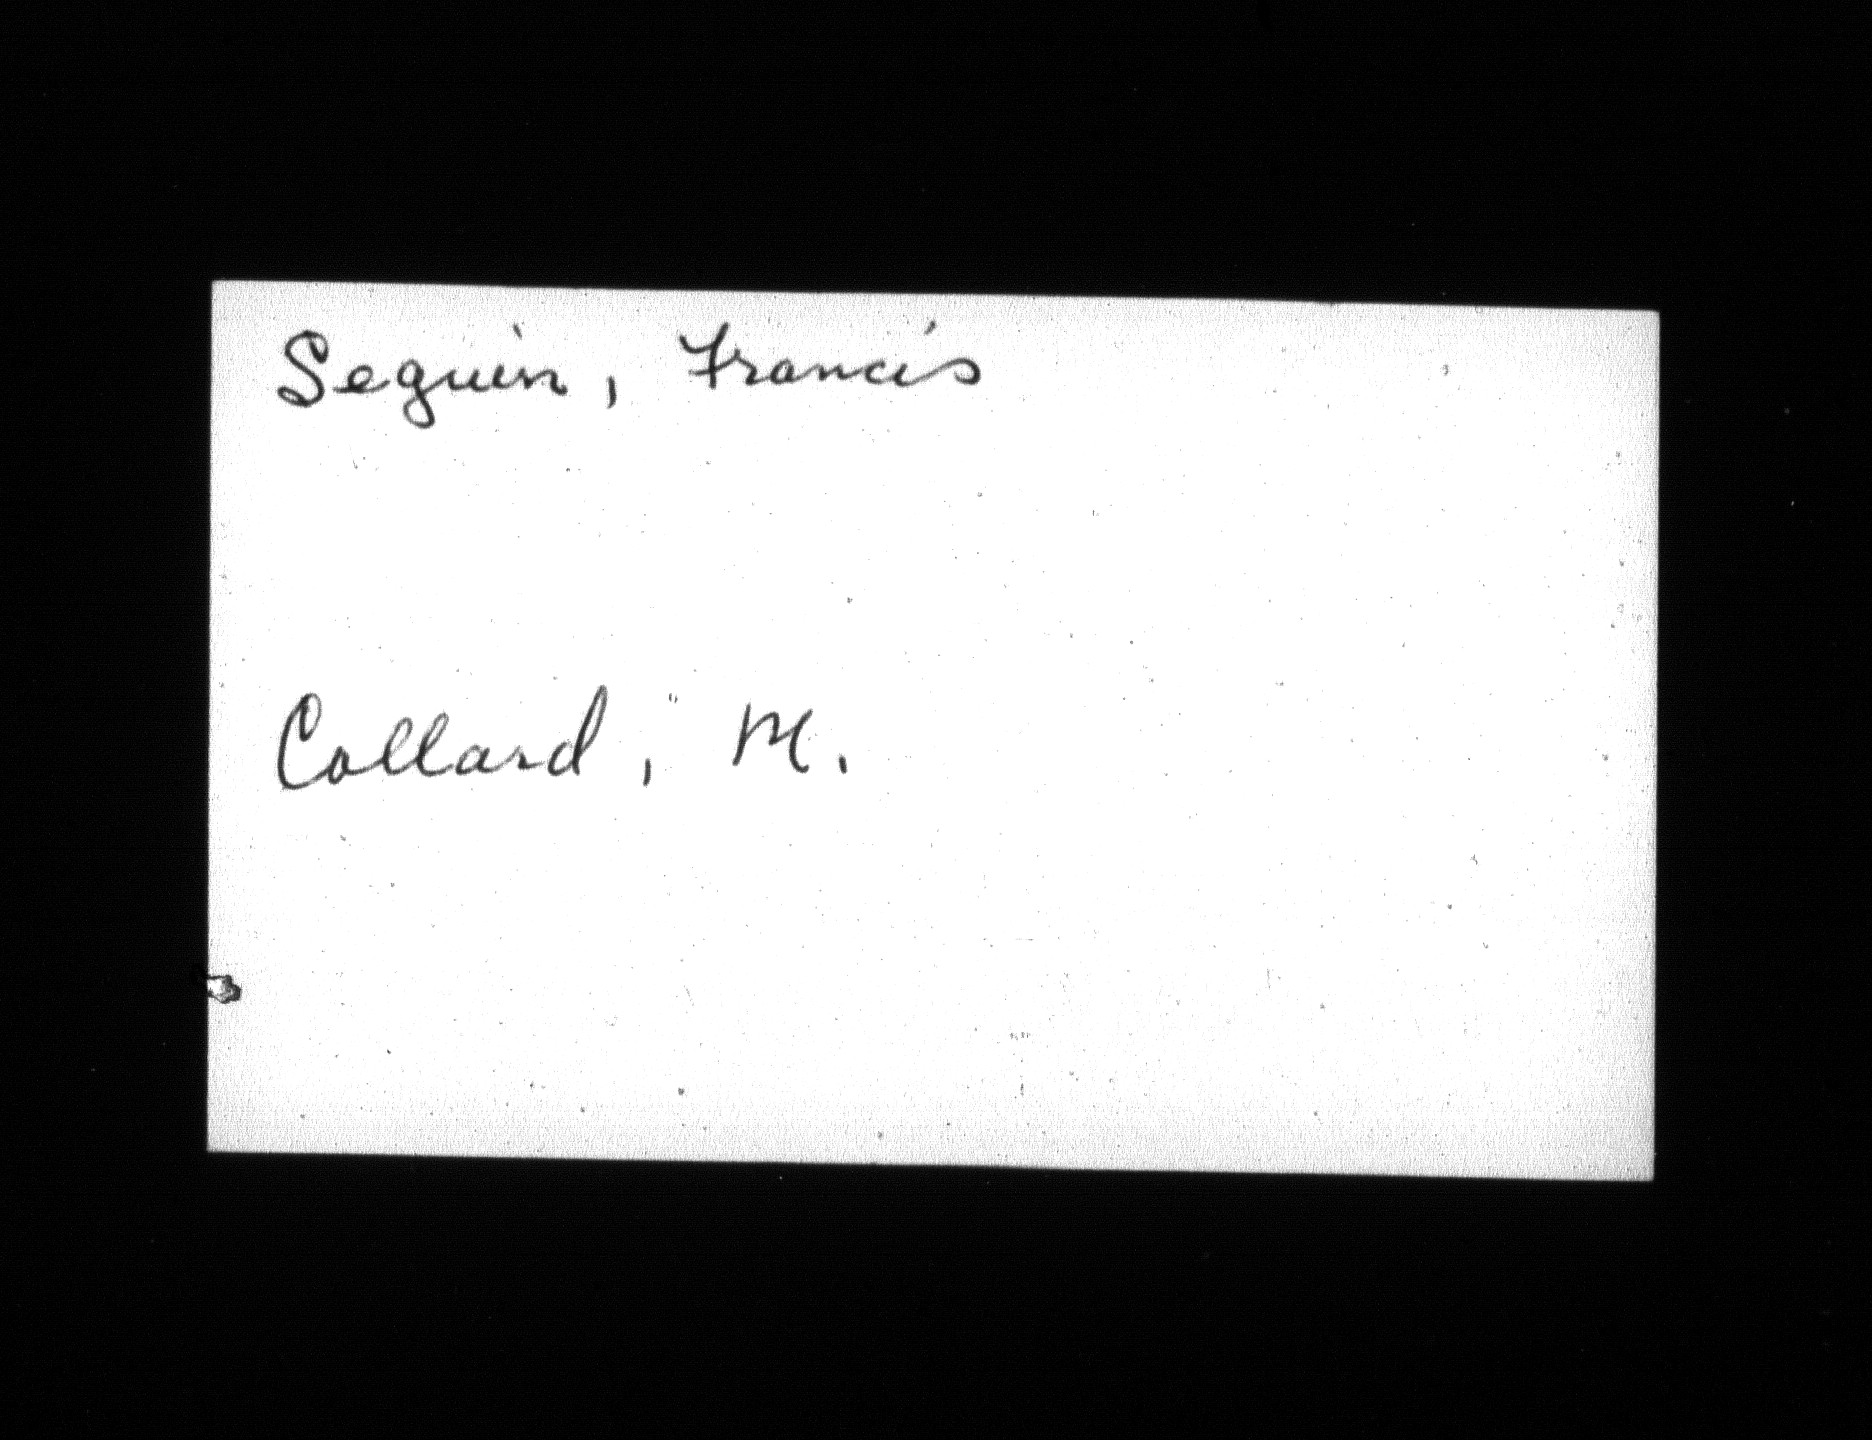 Seguin, Francis
Collard, M.